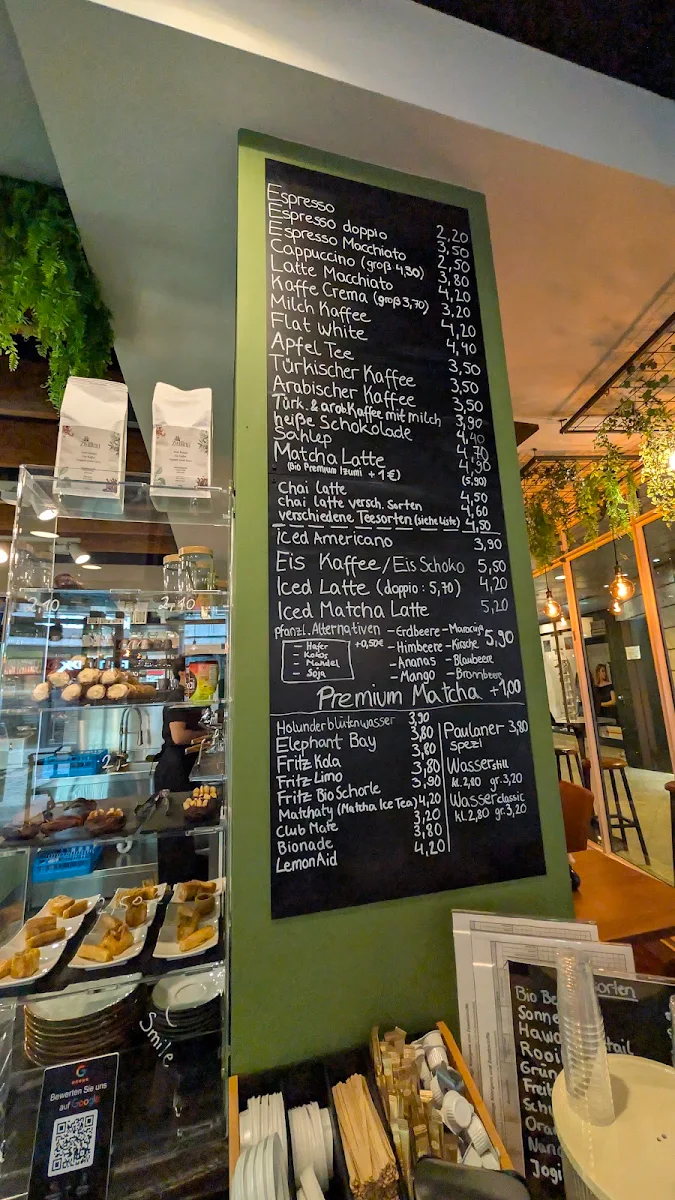 Espresso 2,20
Espresso doppio 3,50
Espresso Macchiato 2,50
Cappuccino (groß 4,30) 3,80
Latte Macchiato 4,20
Kaffe Crema (groß 3,70) 3,20
Milch Kaffee 4,20
Flat white 4,40
Apfel Tee 3,50
Türkischer Kaffee 3,50
Arabischer Kaffee 3,50
Türk. & arab. Kaffee mit milch 3,90
heiße Schokolade 4,40
Sahlep 4,70
Matcha Latte 4,90
(Bio Premium Izumi + 1€) (5,90)
Chai latte 4,50
chai latte versch. Sorten 4,60
verschiedene Teesorten (siehe Liste) 4,50
Iced Americano 3,90
Eis Kaffee/Eis Schoko 5,50
Iced Latte (doppio: 5,70) 4,20
Iced Matcha Latte 5,20
pflanzl. Alternativen +0,50€
- Hafer
- Kokos
- Mandel
- Soja
- Erdbeere - Maracuja 5,90
- Himbeere - Kirsche
- Ananas - Blaubeere
- Mango - Brombeere
Premium Matcha +1,00
Holunderblütenwasser 3,90
Elephant Bay 3,80
Fritz Kola 3,80
Fritz Limo 3,80
Fritz Bio Schorle 3,90
Matchaty (Matcha Ice Tea) 4,20
Club Mate 3,20
Bionade 3,80
LemonAid 4,20
Paulaner 3,80
Spezi
Wasser still
kl. 2,80 gr. 3,20
Wasser classic
kl. 2,80 gr. 3,20
2,10
2,10
Smile
Bewerten Sie uns
auf Google
Bio
Sonne
Rooi
Grün
Jogi